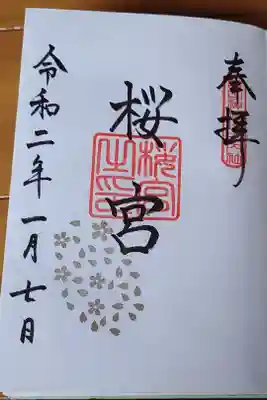 奉拝
桜宮
桜宮之印
令和二年一月七日